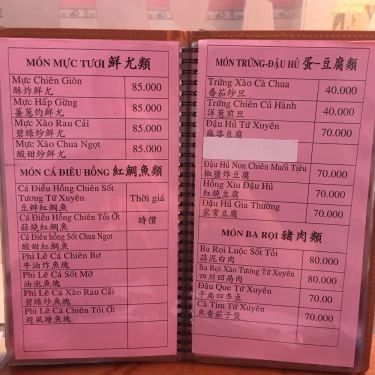 MÓN MỰC TƯƠI 鮮尤類
Mực Chiên Giòn 85.000
酥炸鮮尤
Mực Hấp Gừng 85.000
薑蔥灼鮮尤
Mực Xào Rau Cải 85.000
碧綠炒鮮尤
Mực Xào Chua Ngọt 85.000
酸甜炒鮮尤
MÓN CÁ ĐIÊU HỒNG 紅鯛魚類
Cá Điều Hồng Chiên Sốt
Tương Tứ Xuyên Thời giá
豆辦紅鯛魚
Cá Điều Hồng Chiên Tỏi Ớt 時價
蒜燒紅鯛魚
Cá Điêu hồng Sốt Chua Ngọt
酸甜紅鯛魚
Phi Lê Cá Chiên Bơ
牛油炸魚塊
Phi Lê Cá Sốt Mỡ
油泡魚塊
Phi Lê Cá Xào Rau Cải
碧綠炒魚塊
Phi Lê Cá Chiên Tỏi Ớt
避風塘魚塊
MÓN TRỨNG-ĐẬU HỦ 蛋-豆腐類
Trứng Xào Cà Chua 40.000
番茄炒旦
Trứng Chiên Củ Hành 40.000
洋蔥煎旦
Đậu Hủ Tứ Xuyên 70.000
麻婆豆腐
Đậu Hủ Non Chiên Muối Tiêu 70.000
椒鹽炸豆腐
Hồng Xíu Đậu Hủ 70.000
紅燒豆腐
Đậu Hủ Gia Thường 70.000
家常豆腐
MÓN BA RỌI 豬肉類
Ba Rọi Luộc Sốt Tỏi 80.000
蒜泥白肉
Ba Rọi Xào Tương Tứ Xuyên 80.000
四川回鍋肉
Đậu Que Tứ Xuyên 70.000
干扁四季豆
Cà Tím Tứ Xuyên 70.00
魚香茄子煲